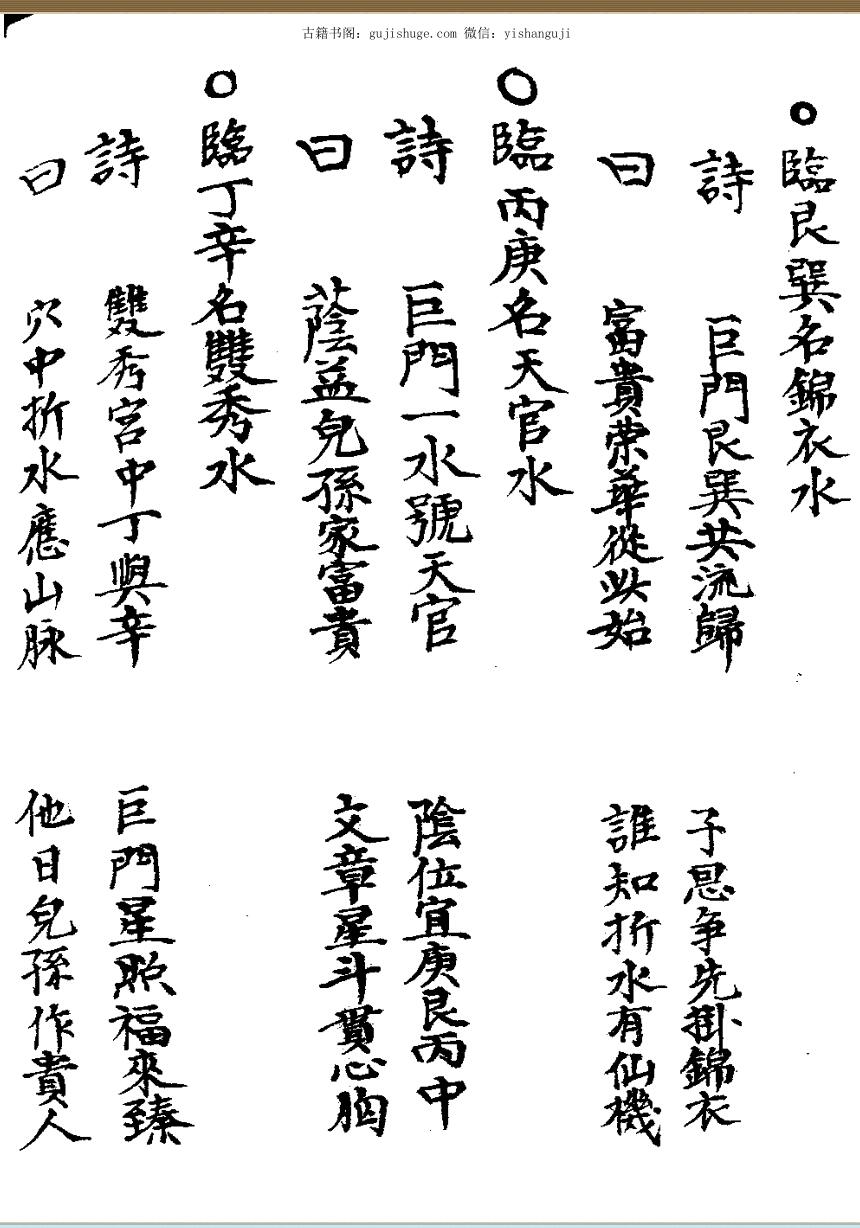 古籍书阁：gujishuge.com 微信：yishanguji
○臨艮巽名錦衣水
詩 巨門艮巽共流歸 子思争先掛錦衣
曰 富貴荣華從此始 誰知折水有仙機
○臨丙庚名天官水
詩 巨門一水號天官 陰位宜庚艮丙中
曰 蔭益兒孫家富貴 文章星斗貫心胸
○臨丁辛名雙秀水
詩 雙秀宮中丁與辛 巨門星照福來臻
曰 穴中折水應山脉 他日兒孫作貴人